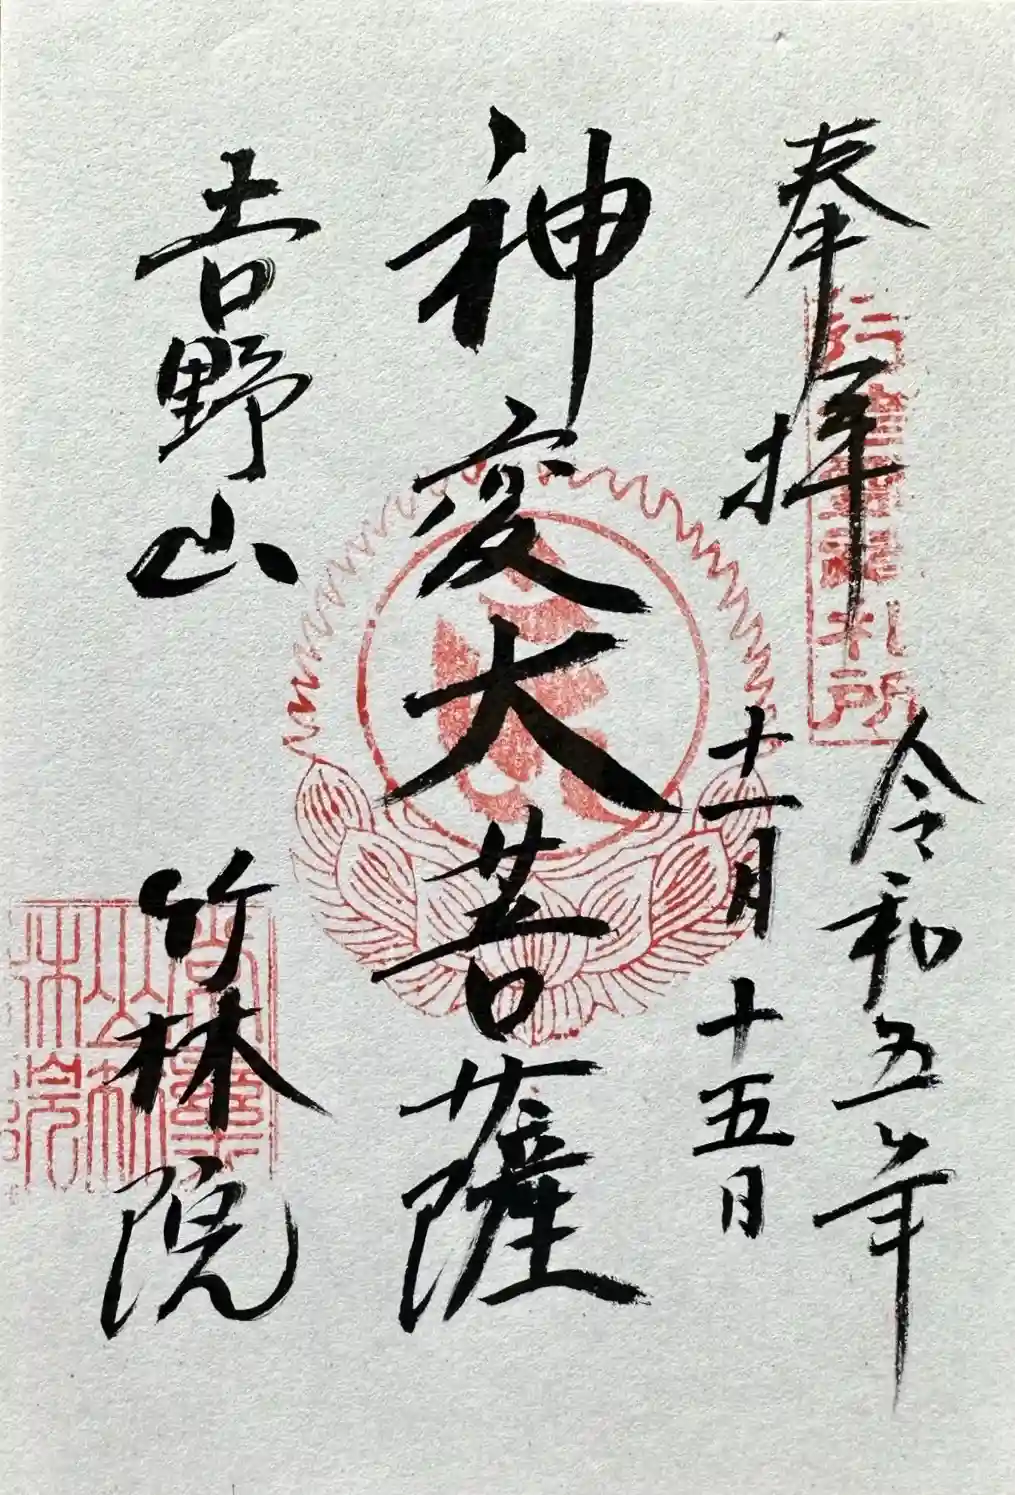 奉拝
札所
令和五年
十一月十五日
神変大菩薩
吉野山
竹林院